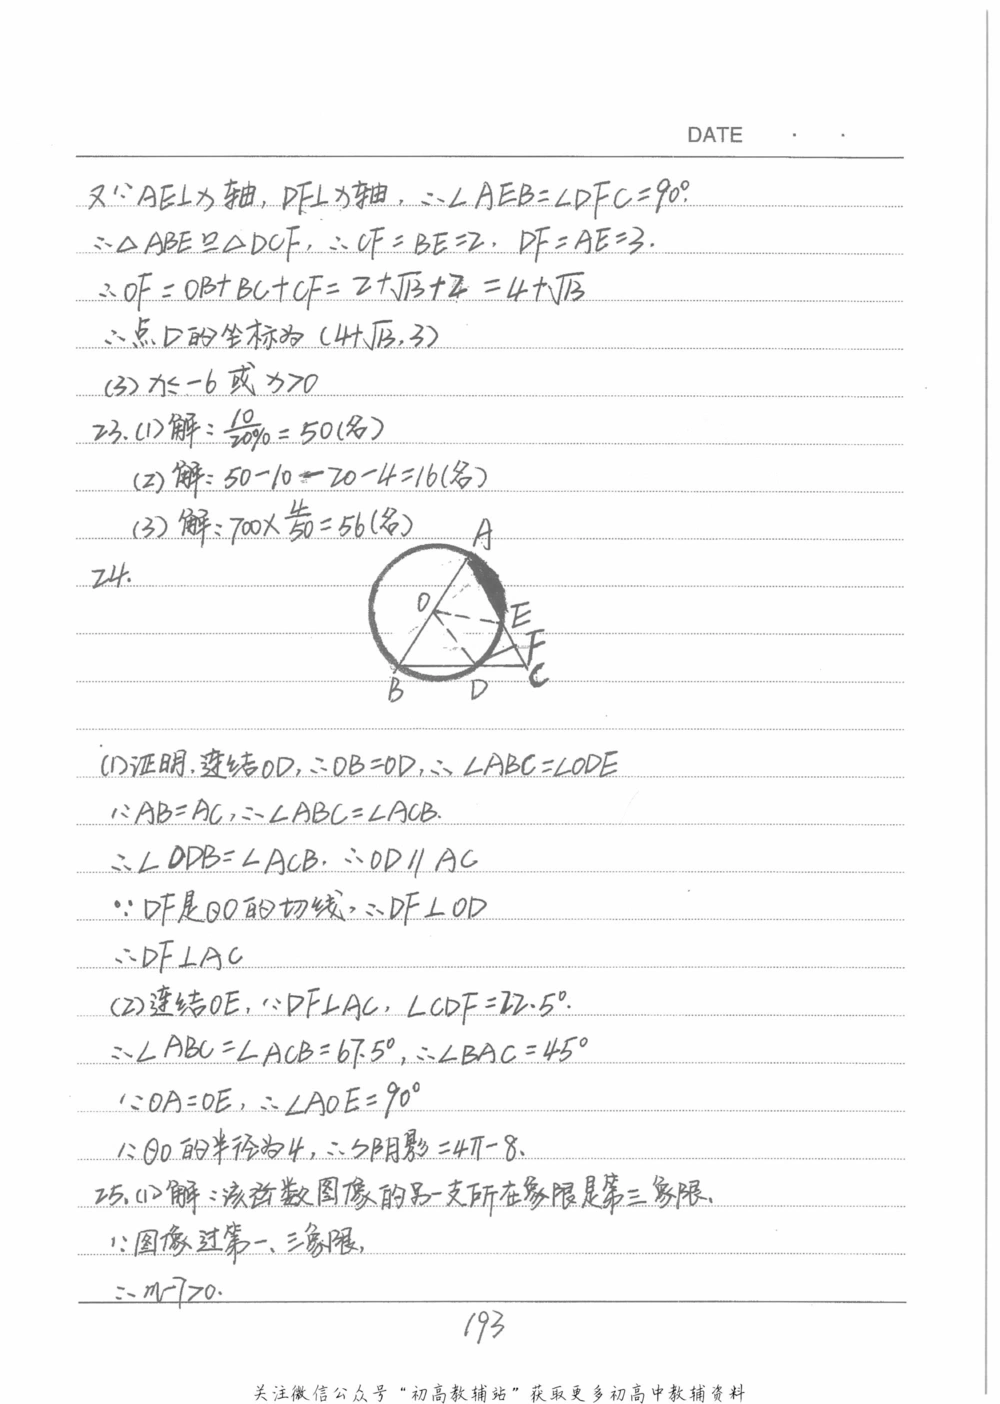 DATE · ·
又∵AE⊥x轴, DF⊥x轴, ∴∠AEB=∠DFC=90°.
∴△ABE≌△DCF, ∴CF=BE=2. DF=AE=3.
∴OF=OB+BC+CF=2+√13+2=4+√13
∴点D的坐标为(4+√13,3)
(3) x≤-6 或 x>0
23.(1)解: 10/20%=50(名)
(2)解:50-10-20-4=16(名)
(3)解:700×4/50=56(名)
24.
A
O
E
F
B
D
C
(1)证明.连结OD,∴OB=OD,∴∠ABC=∠ODE
∵AB=AC,∴∠ABC=∠ACB.
∴∠ODB=∠ACB. ∴OD∥AC
∵DF是⊙O的切线,∴DF⊥OD
∴DF⊥AC
(2)连结OE,∵DF⊥AC, ∠CDF=22.5°.
∴∠ABC=∠ACB=67.5°,∴∠BAC=45°
∵OA=OE, ∴∠AOE=90°
∵⊙O的半径为4,∴S阴影=4π-8.
25.(1)解:该函数图像的另一支所在象限是第三象限.
∵图像过第一、三象限,
∴m-7>0.
193
关注微信公众号“初高教辅站”获取更多初高中教辅资料